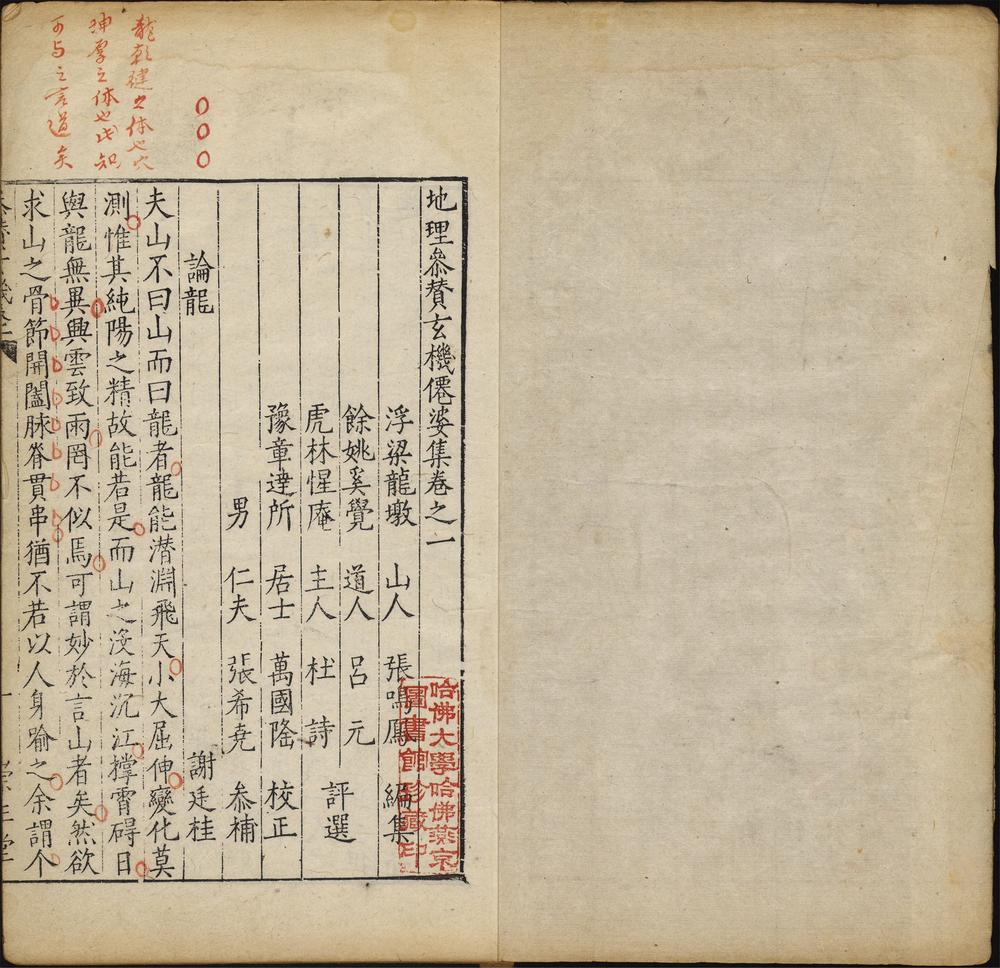 地理叅賛玄機僊婆集卷之一
浮梁龍墩 山人 張鳴鳳 編集
餘姚奚覺 道人 呂元
虎林惺庵 主人 杜詩 評選
豫章達所 居士 萬國隆 校正
男 仁夫 張希堯 叅補
謝廷桂
論龍
夫山不曰山而曰龍者龍能潜淵飛天小大屈伸變化莫
測惟其純陽之精故能若是而山之浸海沉江撑霄碍日
與龍無異興雲致雨罔不似焉可謂妙於言山者矣然欲
求山之骨節開闔脉脊貫串猶不若以人身喻之余謂个
龍乾健之体也穴
坤厚之体也此知
可与之言道矣
哈佛大學哈佛燕京
圖書館珍藏印